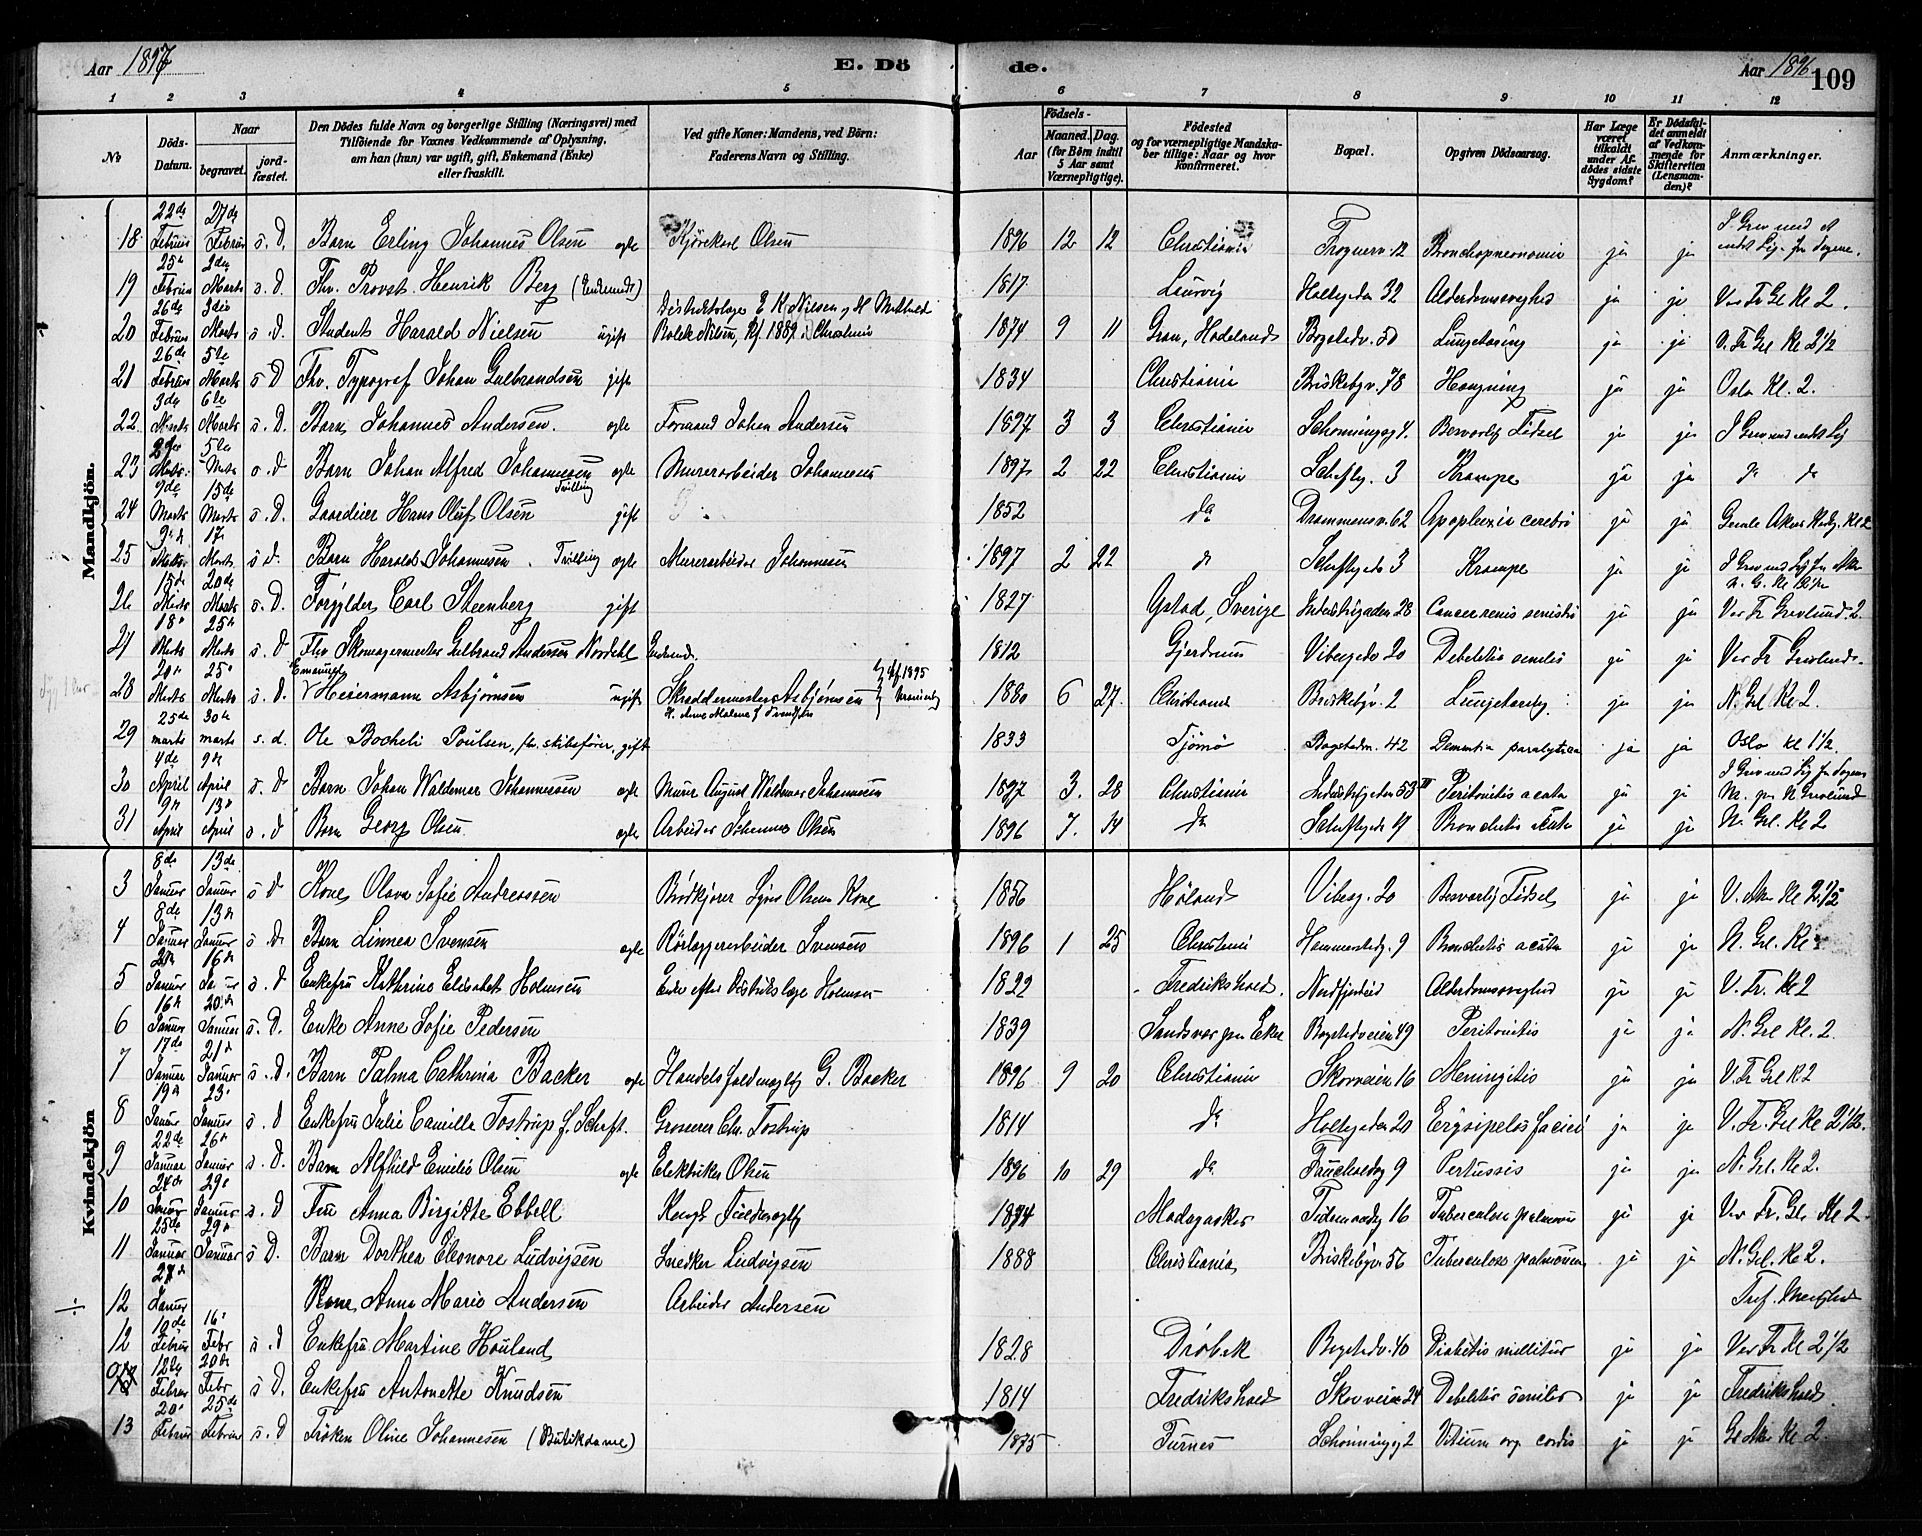 Aar 1897 E. Dö de. Aar 1896 109
1 2 3 4 5 6 7 8 9 10 11 12
No
Döds-Datum.
Naar begravet. jord-fæstet.
Den Dödes fulde Navn og borgerlige Stilling (Næringsvei) med Tilföiende for Voxnes Vedkommende af Oplysning, om han (hun) var ugift, gift, Enkemand (Enke) eller fraskilt.
Ved gifte Koner: Mandens, ved Börn: Faderens Navn og Stilling.
Födsels-
Aar
Maaned. Dag. (for Börn indtil 5 Aar samt Værnepligtige).
Födested og for værnepligtige Mandskaber tillige: Naar og hvor konfirmeret.
Bopæl.
Opgiven Dödsaarsag.
Har Læge været tilkaldt under Afdödes sidste Sygdom?
Er Dödsfaldet anmeldt af Vedkommende for Skifteretten (Lensmanden)?
Anmærkninger.
Mandkjön.
18 22de Februar 27de Februar s. D. Barn Erling Johannes Olsen ægte Kjörekarl Olsen 1896 12 12 Christiania Frognerv. 12 Bronchopneomonia ja ja I Grav med et andet Lig fra Sogne.
19 25de Februar 2den Marts s. D. Fhv. Provst Henrik Berg (Enkemand) 1817 Laurvig Holtegaden 32 Alderdomssvaghed ja ja Vor Fr Gl Kl 2.
20 26de Februar 3die Marts s. D. Student Harald Nielsen ugift Distriktslæge E K Nielsen og H Mathild Bolek Nilsen, Kf 1889. Christiania 1874 9 11 Gran, Hadeland Bogstadv. 50 Lungetæring ja ja V. Fr Grl Kl 2 1/2
21 26de Februar 5te Marts s D Fhv. Typograf Johan Gulbrandsen gift 1834 Christiania Briskebyv. 78 Hængning ja ja Oslo Kl. 2.
22 3de Marts 6te Marts s. D. Barn Johannes Andersen. ægte Formand Johan Andersen 1897 3 3 Christiania Schönningsg 4. Besværlig Födsel ja ja I Grav med andet Lig
23 Marts 5te Marts s. d Barn Johan Alfred Johannesen Tvilling ægte Murerarbeider Johannesen 1897 2 22 Christiania Schultzg. 3 Krampe ja ja do do
24 9de Marts 15de Marts s. D. Gaardeier Hans Oluf Olsen gift 1852 do Drammensv. 62 Apoplexia cerebri ja ja Gamle Akers Kirkeg. Kl 2
25 9de Marts 17de Marts s d. Barn Harald Johannesen. Tvilling ægte Murerarbeider Johannesen 1897 2 22 do Schultzgade 3 Krampe ja ja I Grav med Lig fra Aker
26 15de Marts 20de Marts s. D. Forgylder Carl Steenberg gift 1827 Ystad, Sverige Industrigaden 28 Cancer renis sinistri ja ja Vor Fr Gravlund. 2.
27 18de Marts 25de Marts s. D Fhv Skomagermester Gulbrand Andersen Nordahl Enkemd. 1812 Gjerdrum Vibesgade 20 Debilitis senilis ja ja Vor Fr Gravlund.
28 20de Marts 25de Marts s. D. Emanuel Heiermann Asbjörnsen ugift Skræddermester Asbjörnsen Kf 1895 Uranienborg 1880 6 27. Christiania Briskebyv. 2 Lungetæring. ja ja N. Grl Kl 2.
29 25de marts 30te marts s. d. Ole Bocheli Poulsen, fhv. skibsförer, gift 1833 Tjömö Bogstadv. 42 Dementia paralytica ja ja Oslo kl 1 1/2.
30 4de April 9de April s. D Barn Johan Waldemar Johannesen ægte Murer August Waldemar Johannesen 1897 3. 28 Christiania Industrigaden 53 III Peritonitis acuta ja ja I Grav med Lig fra Sogne
31 9de April 13de April s. D Barn Georg Olsen ægte Arbeider Johannes Olsen 1896 7. 14 do Schultzgade 9 Bronchitis acuta ja ja N. Grl. Kl 2
Kvindekjön
3 8de Januar 13de Januar s D Kone Olava Sofie Andreassen Brödkjörer Olsens Kone 1856 Höland Vibesg. 20 Besværlig Födsel ja ja V. Aker Kl 2 1/2
4 8de Januar 13de Januar s. D. Barn Linnea Svensen ægte Rörlæggerarbeider Svensen 1896 1 25 Christiania Hammerstadg. 9 Bronchitis acuta ja ja N. Grl. Kl 2
5 Januar 16de Januar s. D Enkefru Kathrine Elisabet Holmsen Enke efter Distriktslæge Holmsen 1822 Fredrikshald. Nordfjordeid Alderdomssvaghed ja ja V. Fr. Kl 2
6 16de Januar 20de Januar s. D. Enke Anne Sofie Pedersen 1839 Sandsvær pr. Eker Bogstadveien 49 Peritonitis ja ja N. Grl Kl. 2.
7 17de Januar 21de Januar s. D. Barn Palma Cathrina Backer ægte Handelsfuldmægtig G. Backer 1896 9 20 Christiania Skovveien 16 Meningitis ja ja V. Fr Grl K 2
8 19de Januar 23de Januar s. d Enkefru Julie Camilla Tostrup f. Schaft. Grosserer Chr. Tostrup 1814 do Holtegaden 20 Erysipelas faciei ja ja V. Fr. Grl Kl 2 1/2.
9 22de Januar 26de Januar s. D. Barn Alfhild Emilie Olsen ægte Elektriker Olsen 1896 10 29 do Fauchaldsg 9 Pertussis ja ja N. Grl. Kl 2.
10 24de Januar 29de Januar s. D Fru Anna Birgitte Ebbell Kongl. Fuldmægtig 1874 Madagaskar Tidemandsg 16 Tuberculose pulmonum ja ja Vor Fr. Gl. Kl 2.
11 25de Januar 29de Januar s D. Barn Dorthea Eleonore Ludvigsen Snedker Ludvigsen 1888 Christiania Briskebyv. 56 Tuberculose pulmonum ja ja N. Grl. Kl 2.
÷ 12 27de Januar Kone Anna Marie Andersen Arbeider Andersen Tref.
12 10de Februar 16de Febr s. D Enkefru Martine Houland 1828 Dröbak Bogstadv. 40 Diabetis millitus ja ja Vor Fr Kl 2 1/2
12de Februar 20de Febr s D. Enkefru Antonette Knudsen 1814 Fredrikshald Skovveien 24 Debilitis senilis ja ja Fredrikshald.
13 20de Februar 25de Februar s. D Fröken Oline Johannesen (Butikdame) 1875 Furnes Schönningsg 2 Vitium org cordis ja ja Gl Aker Kl 2.